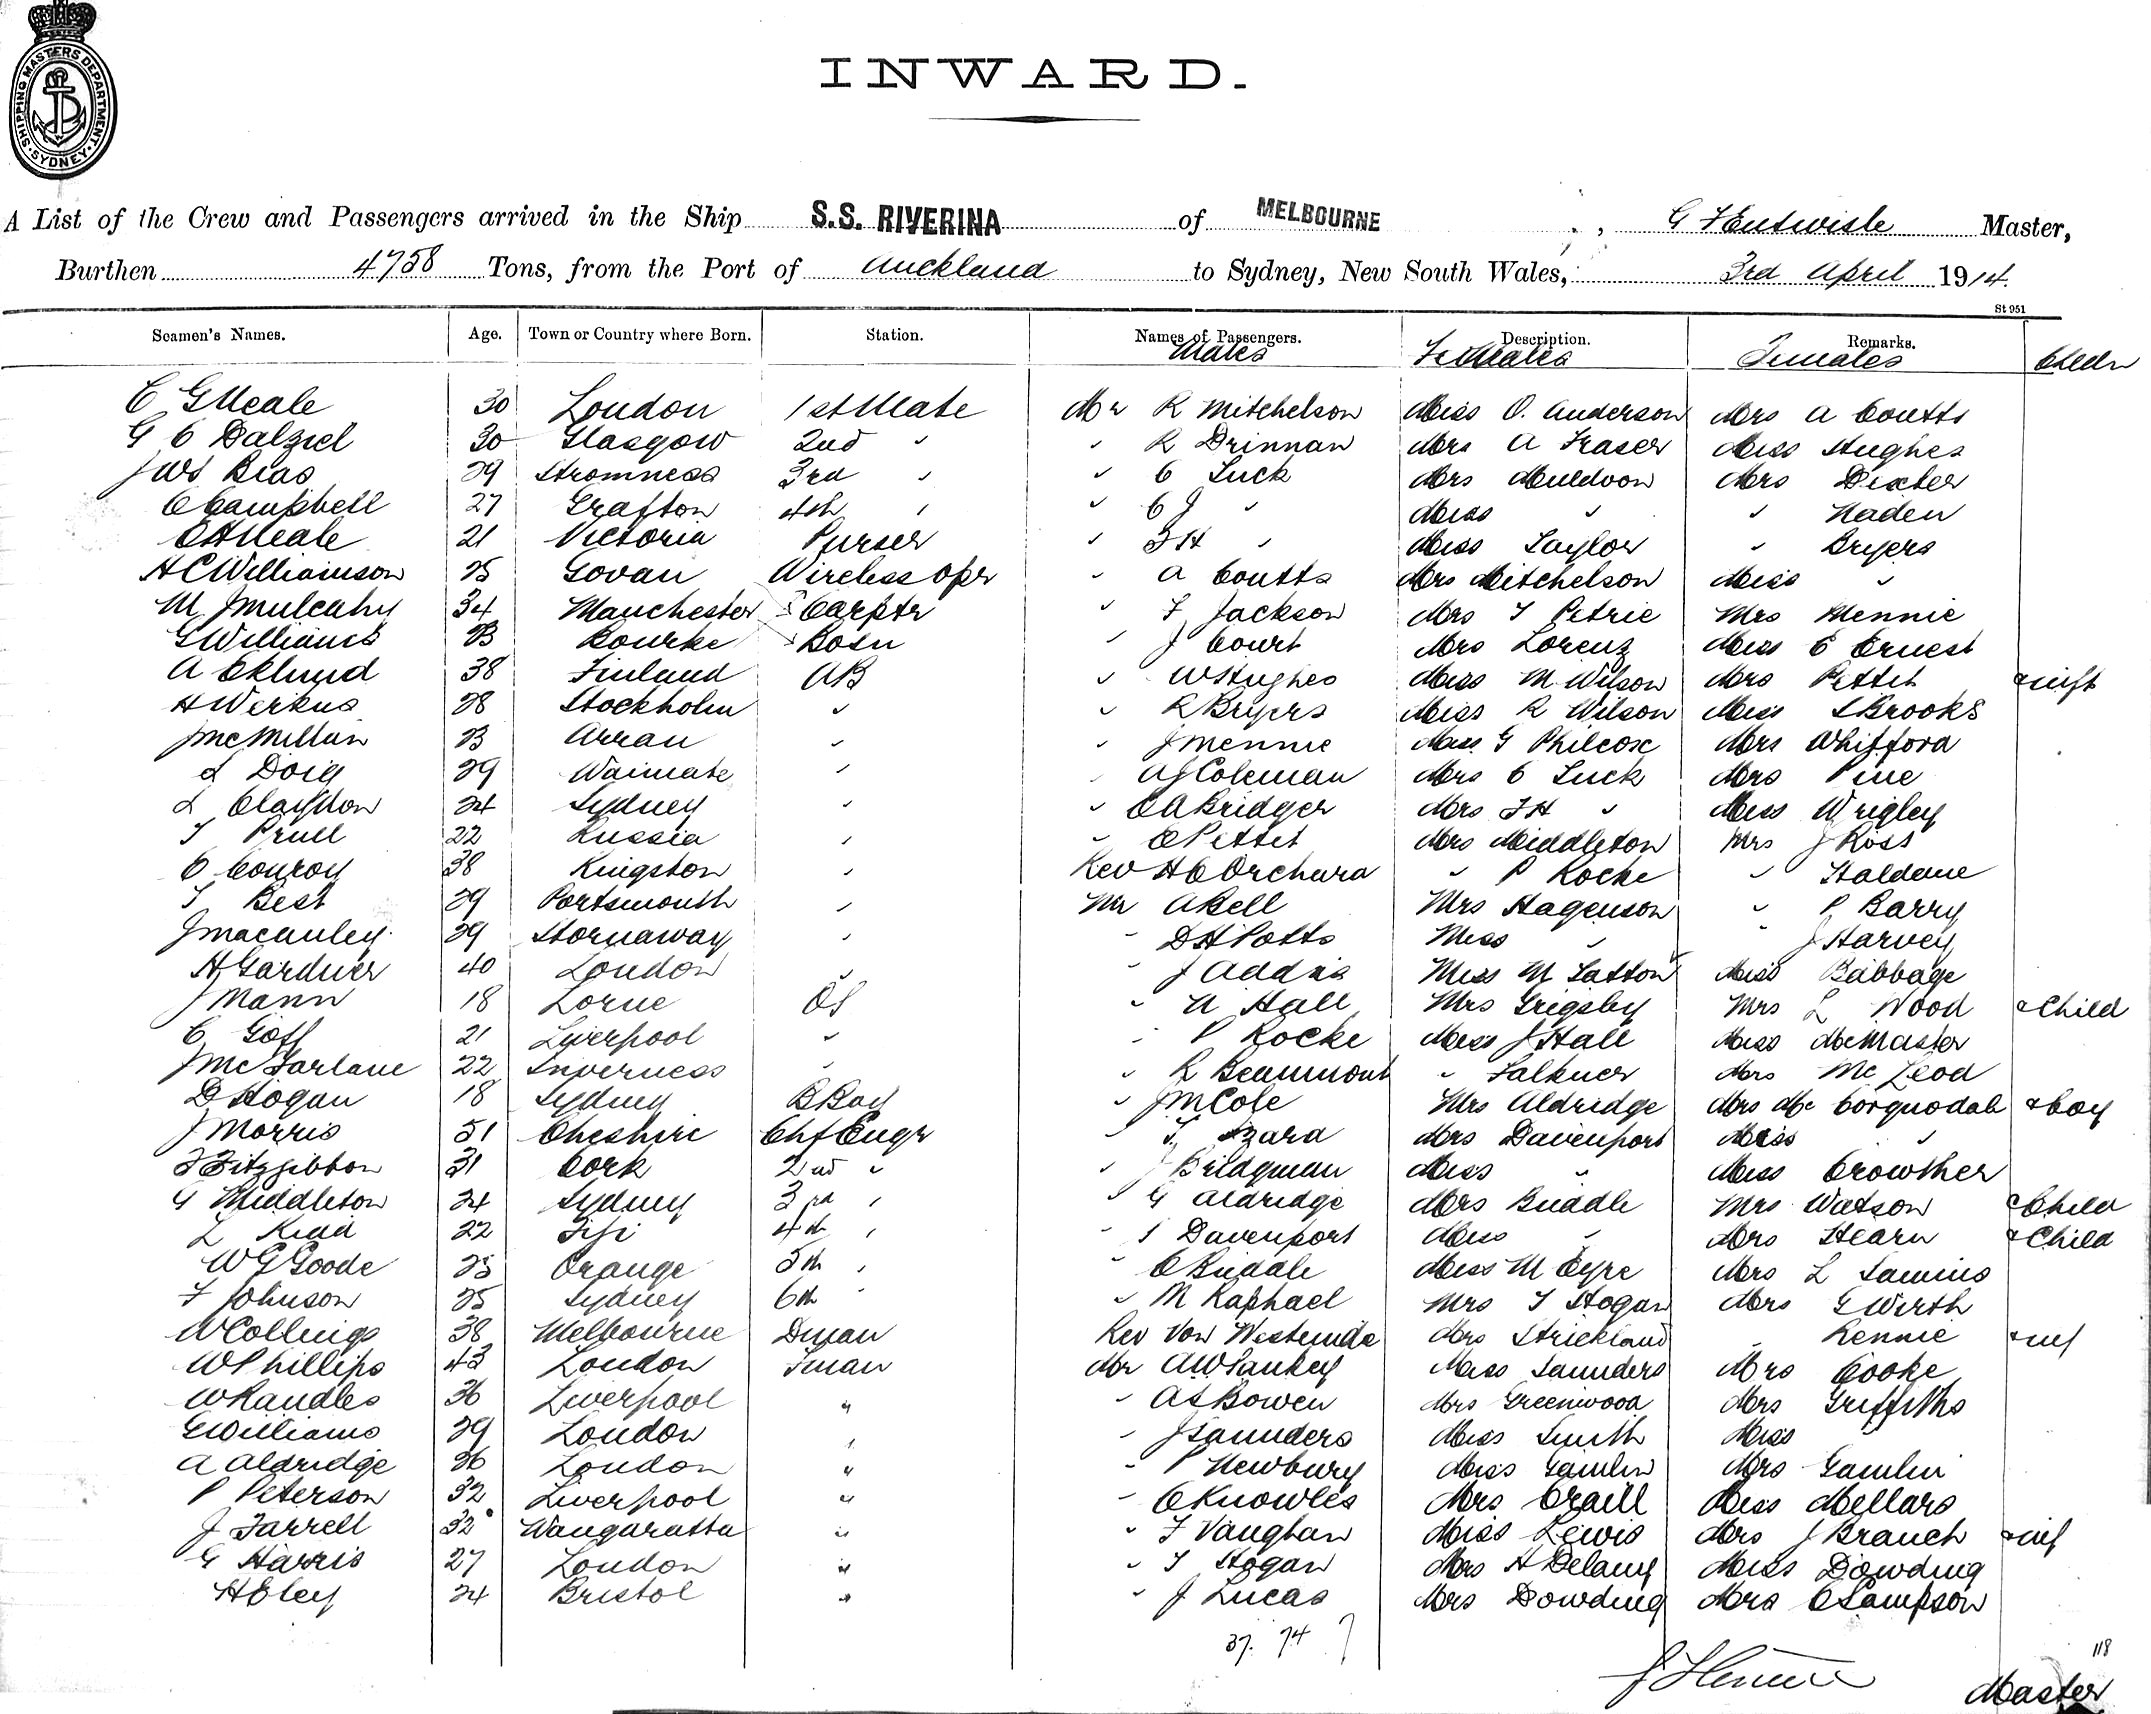 SHIPPING MASTERS DEPARTMENT. SYDNEY.
INWARD.
A List of the Crew and Passengers arrived in the Ship S.S. RIVERINA of MELBOURNE, G Entwisle Master,
Burthen 4758 Tons, from the Port of Auckland to Sydney, New South Wales, 3rd April 1914.
St 951
Seamen's Names. Age. Town or Country where Born. Station. Names of Passengers. Description. Remarks.
Males Females Females Childn
C G Meale 30 London 1st Mate Mr R Mitchelson Miss O. Anderson Mrs A Coutts
G C Dalziel 30 Glasgow 2nd " " R Drinnan Mrs A Fraser Miss Hughes
JWS Bias 29 Stromness 3rd " " C Luck Mrs Muldoon Mrs Dexter
C Campbell 27 Grafton 4th " " C J " Miss " " Naden
C H Meale 21 Victoria Purser " F H " Miss Taylor " Bryers
H C Williamson 25 Govan Wireless Opr " A Coutts Mrs Mitchelson Miss "
M J Mulcahy 34 Manchester Carptr " F Jackson Mrs T Petrie Mrs Mennie
G Williams 23 Bourke Bosn " J Court Mrs Lorenz Miss C Ernest
A Eklund 38 Finland AB " W Hughes Miss M Wilson Mrs Pettit & inft
H Werkus 28 Stockholm " " R Bryers Miss R Wilson Miss S Brooks
J McMillan 23 Arran " " J Mennie Miss G Philcox Mrs Whifford
L Doig 29 Waimate " " A J Coleman Mrs C Luck Mrs Pine
L Claydon 24 Sydney " " C A Bridger Mrs F H " Miss Wrigley
T Prull 22 Russia " " C Pettit Mrs Middleton Mrs J Ross
C Conroy 38 Kingston " Rev H C Orchard " P Rocke " Haldane
T Best 29 Portsmouth " Mr A Bell Mrs Hagenson " P Barry
J Macauley 29 Stornaway " " D H Potts Miss " " J Harvey
H Gardner 40 London " " J Addis Miss M Tatton Miss Babbage
J Mann 18 Lorne OS " A Hall Mrs Grigsby Mrs L Wood & Child
C Goff 21 Liverpool " " P Rocke Miss J Hall Miss McMaster
J McFarlane 22 Inverness " " R Beaumont " Falkner Mrs McLeod
D Hogan 18 Sydney B Boy " J M Cole Mrs Aldridge Mrs McCorquodale & boy
J Morris 51 Cheshire Chf Engr " Azara Mrs Davenport Miss "
F Fitzgibbon 31 Cork 2nd " " J Bridgman Miss " Miss Crowther
G Middleton 24 Sydney 3rd " " G Aldridge Mrs Buddle Mrs Watson & Child
L Kidd 22 Fiji 4th " " S Davenport Miss " Mrs Hearn & Child
W G Goode 23 Orange 5th " " C Buddle Miss M Eyre Mrs L
F Johnson 25 Sydney 6th " " M Raphael Mrs T Hogan Mrs G Wirth
W Collings 38 Melbourne Dman Rev Von Mrs Strickland " Rennie & inf
W Phillips 43 London Fman Mr A W Pankey Miss Saunders Mrs Cooke
W Randles 36 Liverpool " " A S Bowen Mrs Greenwood Mrs Griffiths
G Williams 29 London " " J Saunders Miss Smith Miss
A Aldridge 26 London " " P Newbury Miss Gamlin Mrs Gamlin
P Peterson 32 Liverpool " " C Knowles Mrs Craill Miss Mellars
J Farrell 32 Wangaratta " " F Vaughan Miss Lewis Mrs J Branch & inf
G Harris 27 London " " T Hogan Mrs H Delany Miss Dowding
H Eley 24 Bristol " " J Lucas Mrs Dowding Mrs C Sampson
37. 74 7
118
Master